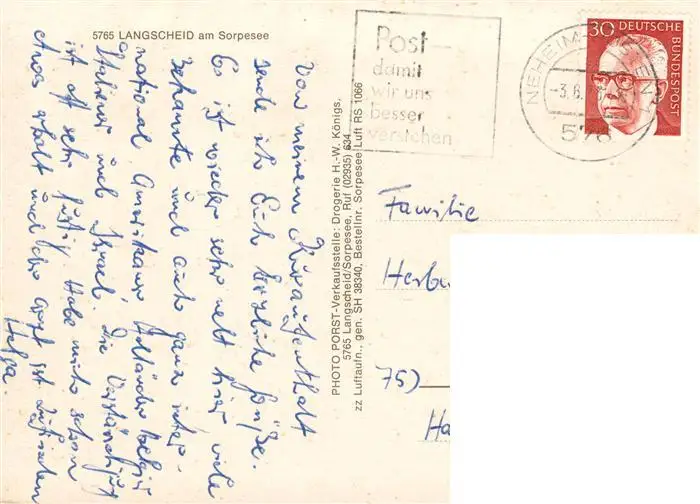 5765 LANGSCHEID am Sorpesee
Post -
damit
wir uns
besser
verstehen
NEHEIM-HÜSTEN 1
-3.8.
576
30 DEUTSCHE
BUNDESPOST
Von meinem Kuraufenthalt
sende ich Euch herzliche Grüße.
Es ist wieder sehr nett hier viele
Bekannte und auch ganz inter-
national Amerikaner Holländer Belgier
Italiener und Israel. Die Verständigung
ist oft sehr lustig. Habe mich schon
etwas erholt und der Arzt ist zufrieden
Helga.
PHOTO PORST-Verkaufsstelle: Drogerie H.-W. Königs,
5765 Langscheid/Sorpesee, Ruf (02935) 634
zz Luftaufn., gen. SH 38340, Bestellnr. Sorpesee Luft RS 1066
Familie
Herbe
75)
Ha